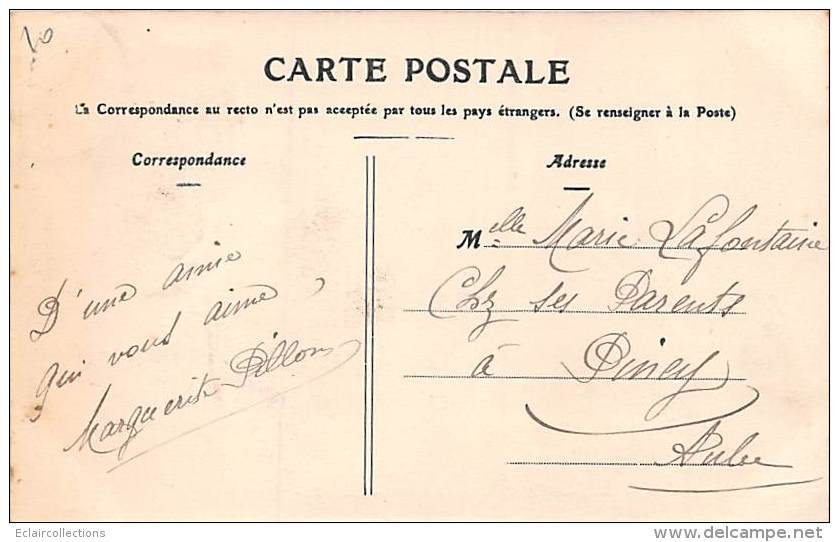 10
CARTE POSTALE
La Correspondance au recto n'est pas acceptée par tous les pays étrangers. (Se renseigner à la Poste)
Correspondance
D'une amie
qui vous aime,
Marguerite Pillon
Adresse
Melle Marie Lafontaine
Chz ses Parents
à Piney
Aube
Eclaircollections
delcampe.net